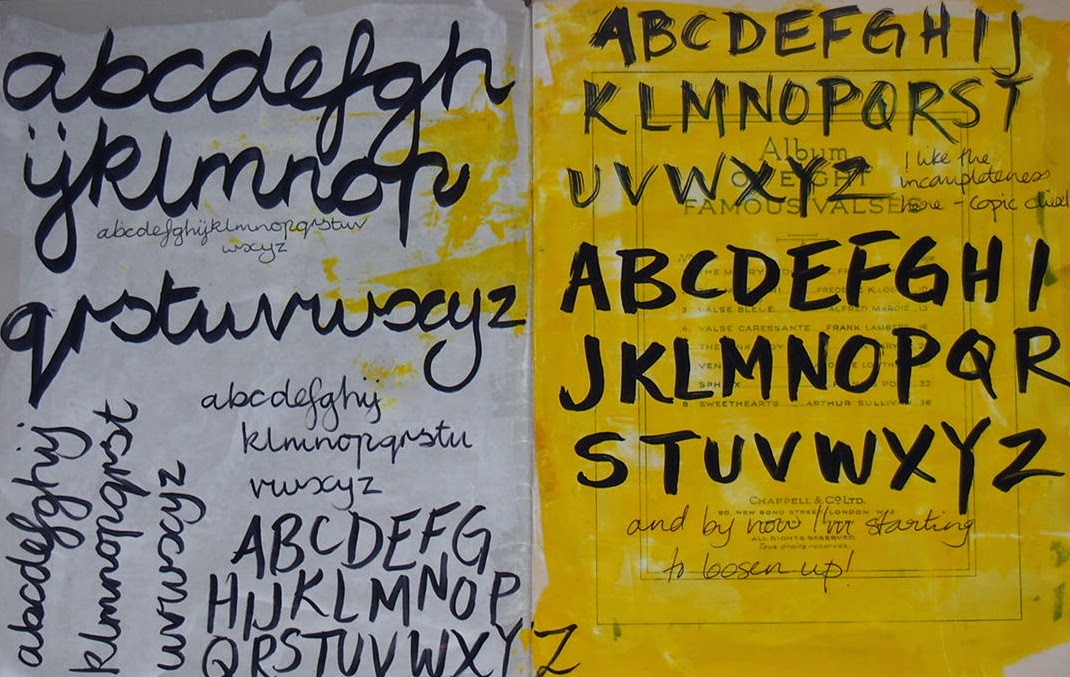 abcdefgh
ijklmnop
abcdefghijklmnopqrstuv
wxyz
qrstuvwxyz
abcdefghij
klmnopqrstu
vwxyz
abcdefghij
klmnopqrst
uvwxyz
ABCDEFG
HIJKLMNOP
QRSTUVWXYZ
ABCDEFGHIJ
KLMNOPQRST
Album
UVWXYZ
I like the
incompleteness
here - copic
OF EIGHT
FAMOUS VALSES
ABCDEFGHI
THE
3. VALSE BLEUE ALFRED 13
4. VALSE CARESSANTE FRANK LAMBERT 16
JKLMNOPQR
32
8. SWEETHEARTS ARTHUR SULLIVAN 36
STUVWXYZ
CHAPPELL & CO. LTD.
NEW BOND STREET LONDON
and by now I'm starting
ALL RIGHTS RESERVED
Tous droits réservés.
to loosen up!